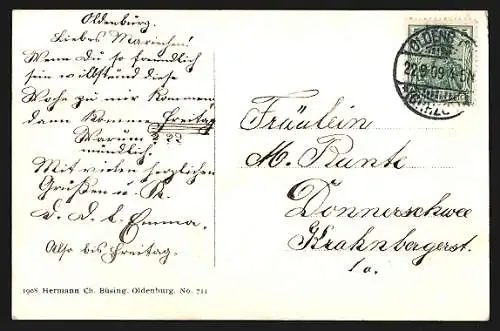 Oldenburg.
Liebes Mariechen!
Wenn Du so freundlich
sein willst und diese
Woche zu mir kommen,
dann komme Freitag
Warum ???
mündlich.
Mit vielen herzlichen
Grüßen u. K.
D. D. l. Emma.
Also bis Freitag.
1908 Hermann Ch. Büsing, Oldenburg. No. 711
OLDENB
22.9.09.4-5N
Fräulein
M. Runte
Donnerschwee
Krahnbergerst.
1a.